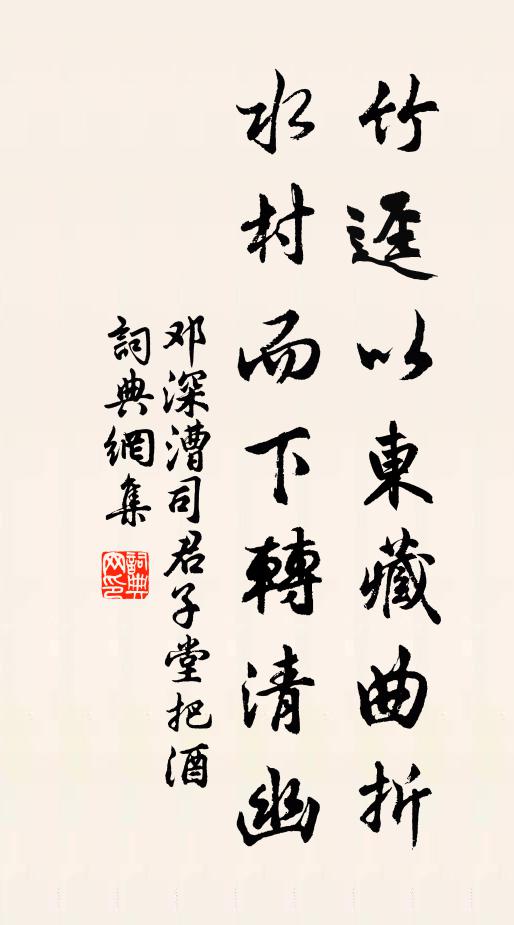 竹迳以東藏曲折
水村而下轉清幽
邓深漕司君子堂把酒
詞典網集
詞典
网印